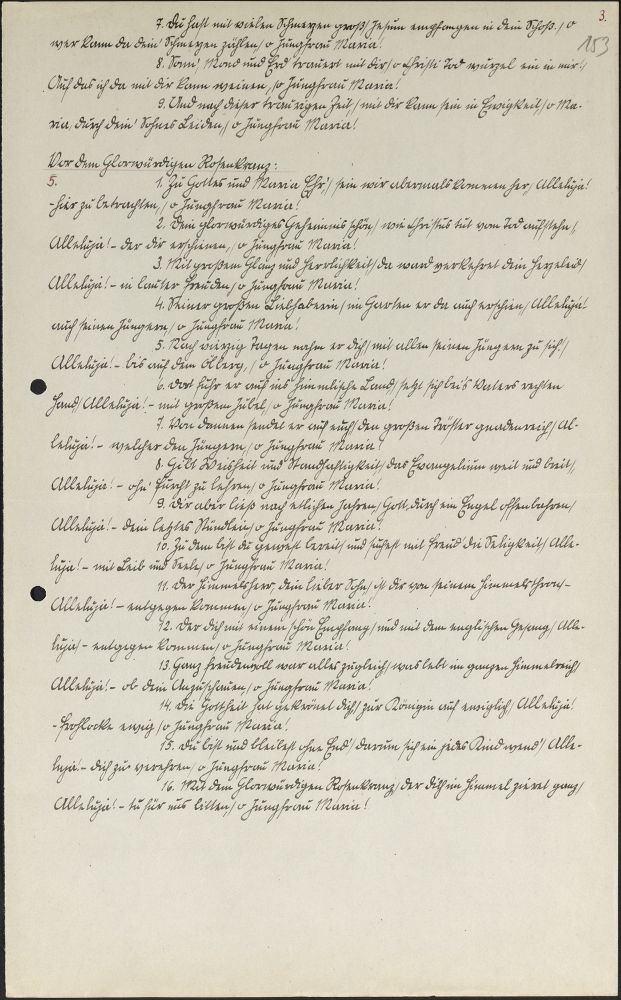 3.
153
7. Du hast mit vielen Schmerzen groß/ Jesum empfangen in dein Schoß./ o
wer kann da dein' Schmerzen zählen/ o Jungfrau Maria!
8. Sonn', Mond und Erd' trauert mit dir/ o Christi Tod wurzel ein in mir!/
Auf das ich da mit dir kann weinen,/ o Jungfrau Maria!
9. Und nach dieser traurigen Zeit/ mit dir kann sein in Ewigkeit/ o Ma-
ria, durch dein' Sohnes Leiden/ o Jungfrau Maria!
Vor dem Glorwürdigen Rosenkranz:
5. 1. Zu Gottes und Maria Ehr'/ sein wir abermals kommen her/ Alleluja!
- hier zu betrachten,/ o Jungfrau Maria!
2. Dein glorwürdiges Geheimnis schön/ wie Christus tut vom Tod aufstehn/
Alleluja! - der dir erschienen,/ o Jungfrau Maria!
3. Mit großem Glanz und Herrlichkeit/ da ward verkehret dein Herzeleid/
Alleluja! - in lauter Freuden/ o Jungfrau Maria!
4. Seiner großen Liebhaberin/ im Garten er da auch erschien/ Alleluja!
auch seinen Jüngern/ o Jungfrau Maria!
5. Nach vierzig Tagen nahm er dich/ mit allen seinen Jüngern zu sich!/
Alleluja! - bis auf dem Ölberg,/ o Jungfrau Maria!
6. Dort fuhr er auf ins himmlische Land/ setzt sich bei's Vaters rechten
Hand/ Alleluja! - mit großem Jubel/ o Jungfrau Maria!
7. Von dannen sendet er auf euch/ den großen Tröster gnadenreich/ Al-
leluja! - welcher den Jüngern/ o Jungfrau Maria!
8. Gibt Weisheit und Standhaftigkeit/ das Evangelium weit und breit/
Alleluja! - ohn' Furcht zu lehren/ o Jungfrau Maria!
9. Dir aber ließ nach etlichen Jahren/ Gott, durch ein Engel offenbahren/
Alleluja! - dein letztes Stündlein/ o Jungfrau Maria!
10. Zu dem bist du gewest bereit/ und fuhest mit Freud' die Seligkeit/ Alle-
luja! - mit Leib und Seele/ o Jungfrau Maria!
11. Der Himmelsherr, dein lieber Sohn/ ist dir von seinem Himmelsthron/ -
Alleluja! - entgegen kommen/ o Jungfrau Maria!
12. Der dich mit einem schön Empfang/ und mit dem englischen Gesang/ Alle-
luja! - entgegen kommen/ o Jungfrau Maria!
13. Ganz freudenvoll war alles zugleich/ was lebt im ganzen Himmelreich/
Alleluja! - ob dein Anzuschauen/ o Jungfrau Maria!
14. Die Gottheit hat gekrönet dich/ zur Königin auch ewiglich/ Alleluja!
- frohlocke ewig/ o Jungfrau Maria!
15. Du bist und bleibest ohne End'/ darum sich ein jedes Kind wend'/ Alle-
luja! - dich zu verehren/ o Jungfrau Maria!
16. Mit dem Glorwürdigen Rosenkranz/ der dich im Himmel zieret ganz/
Alleluja! - tu für uns bitten/ o Jungfrau Maria!